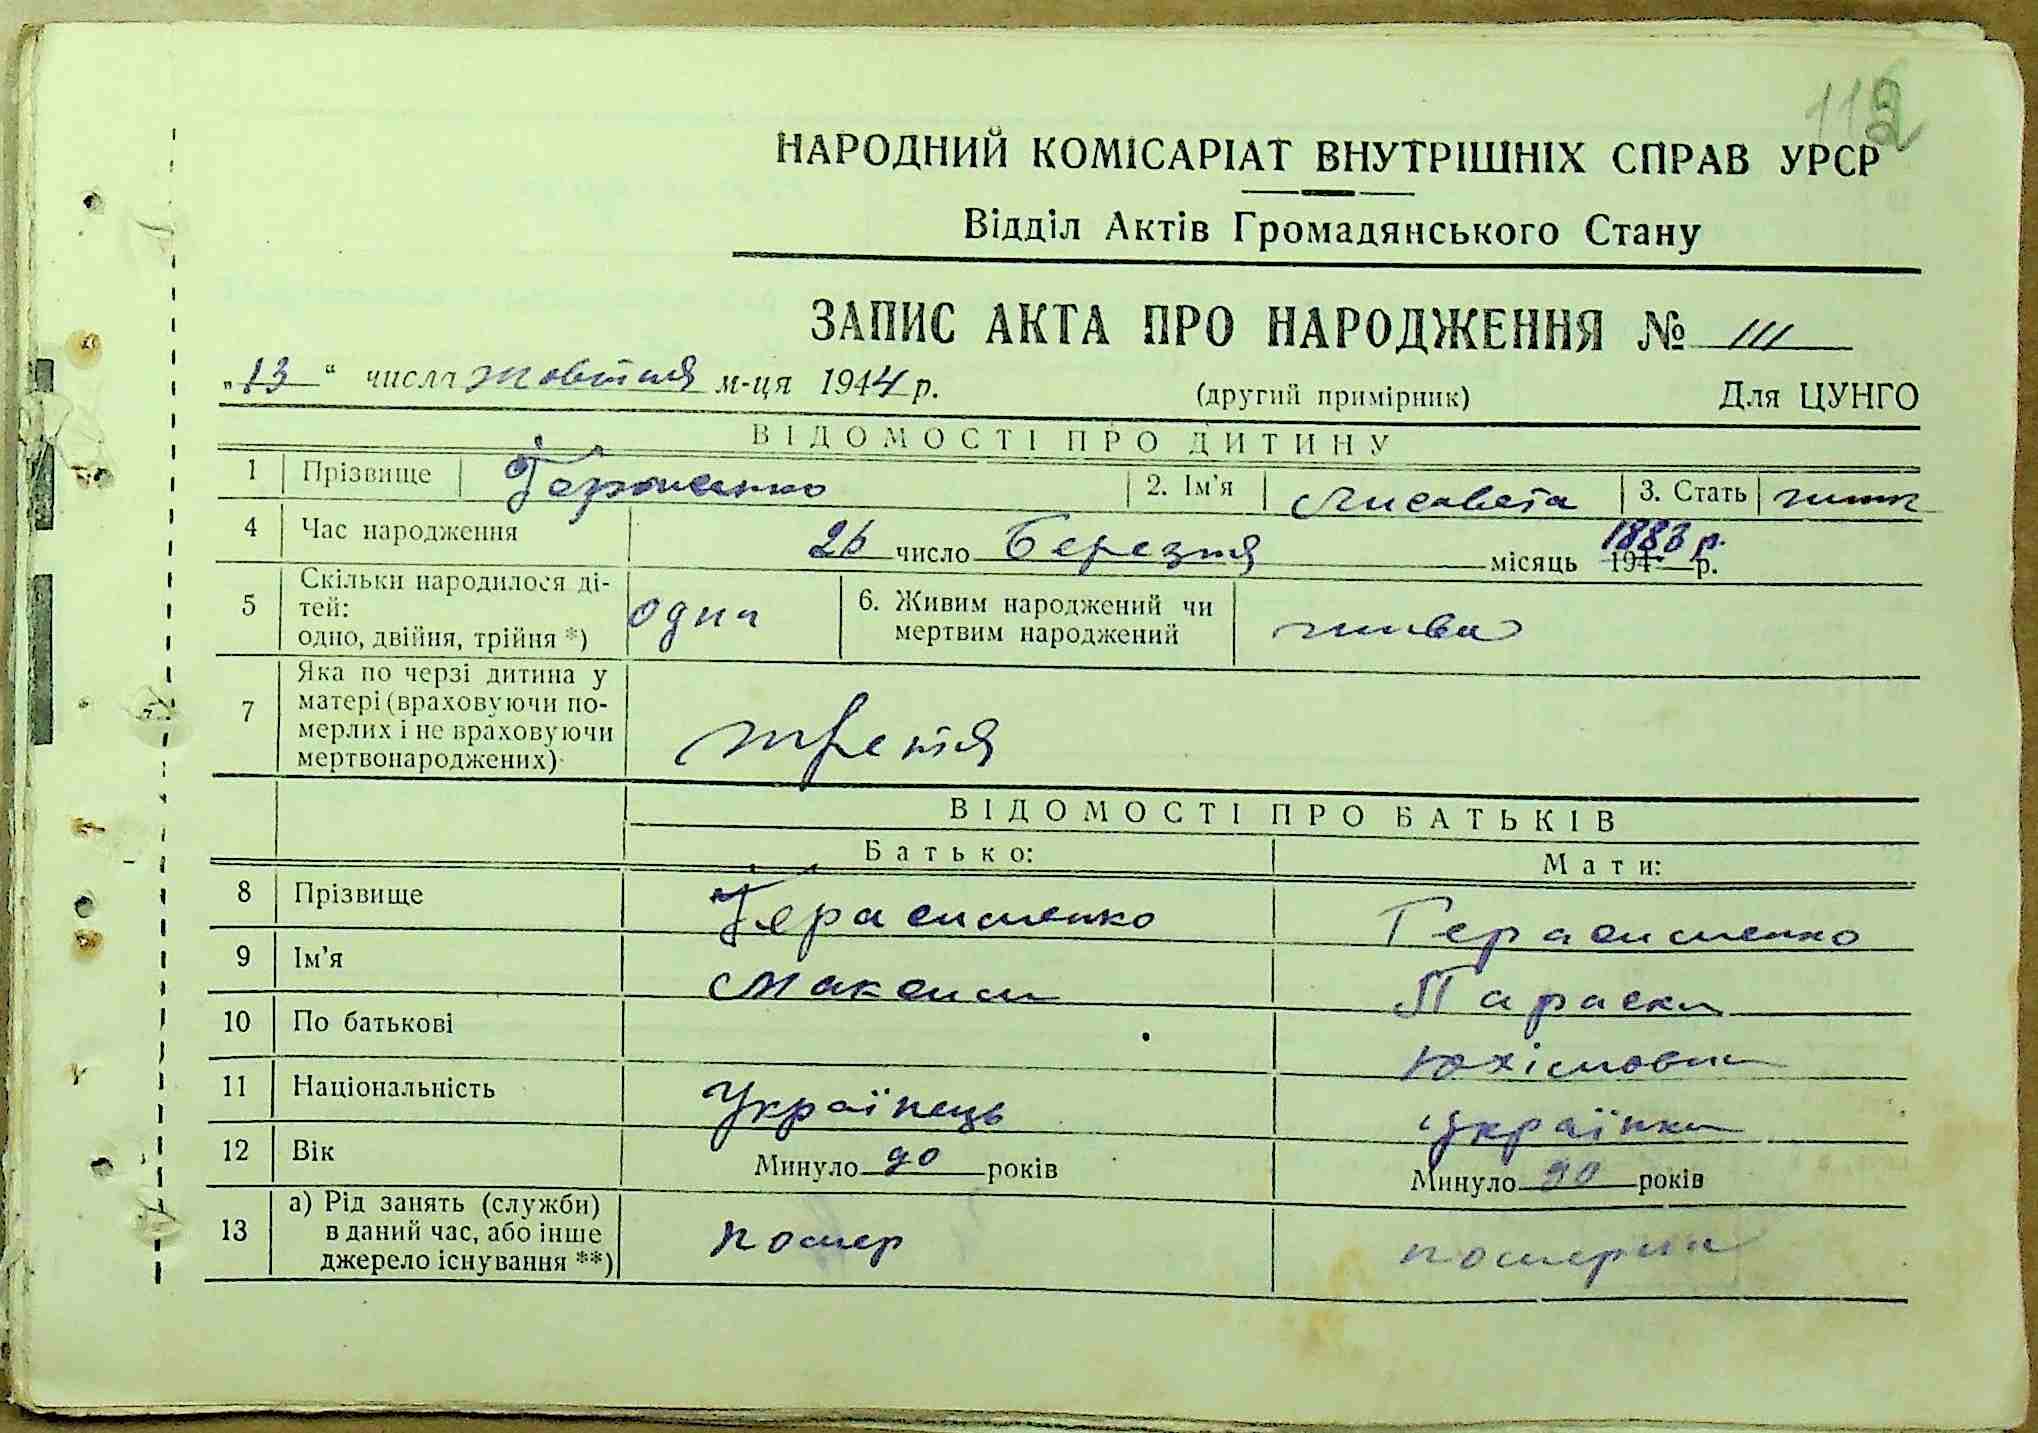 112
НАРОДНИЙ КОМІСАРІАТ ВНУТРІШНІХ СПРАВ УРСР
Відділ Актів Громадянського Стану
ЗАПИС АКТА ПРО НАРОДЖЕННЯ № 111
„13“ числа жовтня м-ця 1944 р. (другий примірник) Для ЦУНГО
ВІДОМОСТІ ПРО ДИТИНУ
1 Прізвище 2. Ім'я Лисавета 3. Стать жин
4 Час народження 26 число Березня місяць 194 р. 1883 р.
5 Скільки народилося ді-
тей:
одно, двійня, трійня *) одна 6. Живим народжений чи
мертвим народжений жива
7 Яка по черзі дитина у
матері (враховуючи по-
мерлих і не враховуючи
мертвонароджених) третя
ВІДОМОСТІ ПРО БАТЬКІВ
Батько: Мати:
8 Прізвище Герасименко Герасименко
9 Ім'я Максим Параска
10 По батькові Юхімовна
11 Національність Українець українка
12 Вік Минуло 90 років Минуло 90 років
13 а) Рід занять (служби)
в даний час, або інше
джерело існування **) помер померла